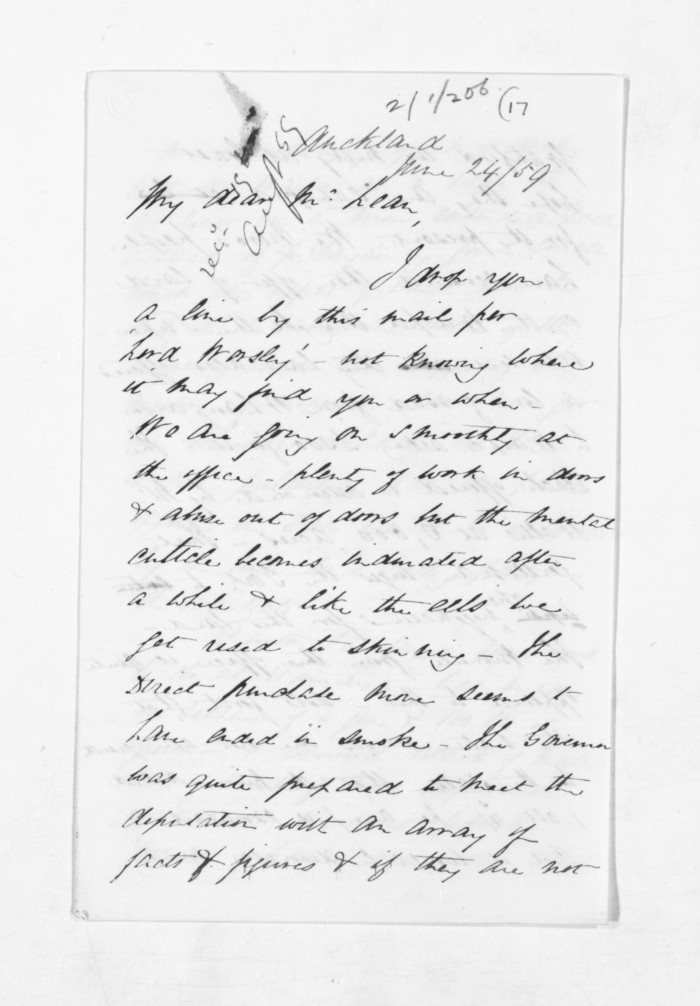 2/1/206 (17
Auckland
June 24/59
recd
Augt 59
My dear Mc Lean,
I drop you
a line by this mail per
'Lord Worsley' - not knowing where
it may find you or when -
We are going on smoothly at
the office - plenty of work in doors
& abuse out of doors but the mental
cuticle becomes indurated after
a while & like the eels we
get used to skinning - The
Direct purchase move seems to
have ended in smoke - The Governor
was quite prepared to meet the
deputation with an array of
facts & figures & if they are not